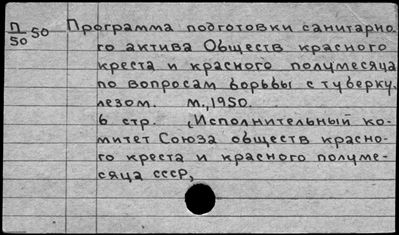 П/50 50 Программа подготовки санитарно-
го актива Обществ красного
креста и красного полумесяца
по вопросам борьбы с туберку-
лезом. М., 1950.
6 стр. (Исполнительный ко-
митет Союза обществ красно-
го креста и красного полуме-
сяца СССР,